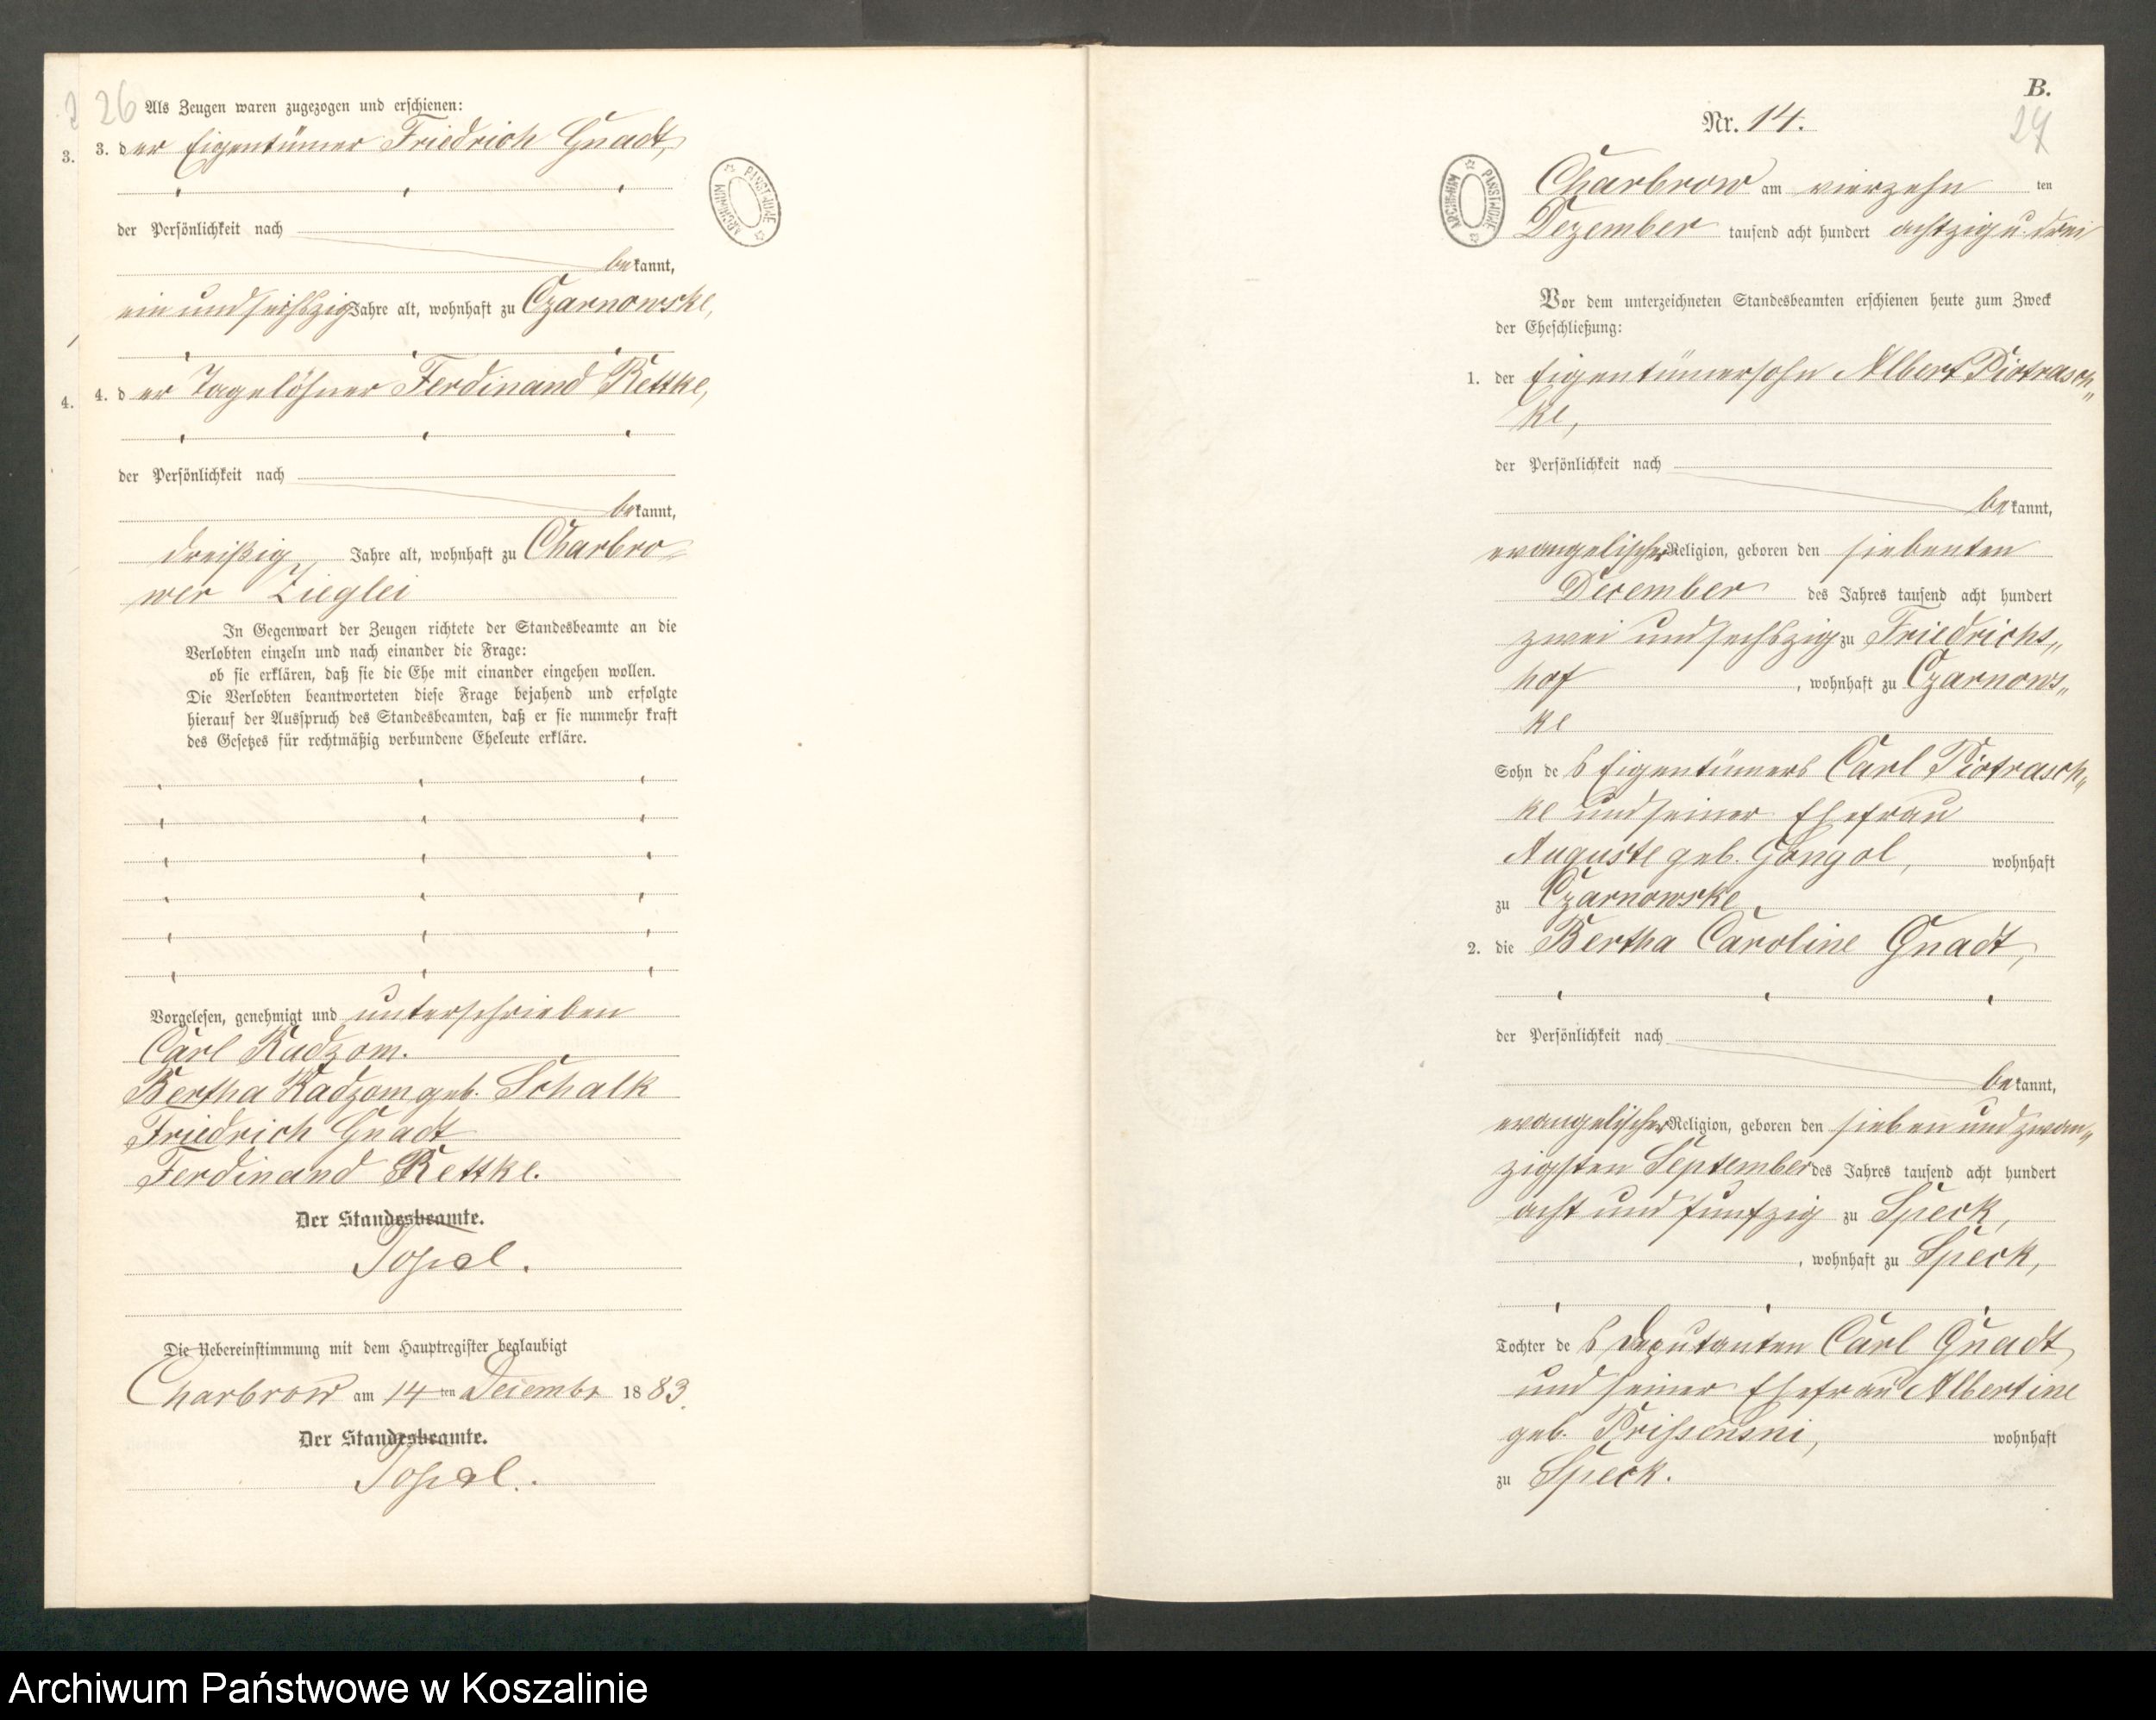 26
Als Zeugen waren zugezogen und erschienen:
3.
3. der Eigentümer Friedrich Gnadt,
der Persönlichkeit nach
bekannt,
ein und sechszig Jahre alt, wohnhaft zu Czarnowske,
4.
4. der Tagelöhner Ferdinand Rettke,
der Persönlichkeit nach
bekannt,
dreißig Jahre alt, wohnhaft zu Charbro-
wer Zieglei
In Gegenwart der Zeugen richtete der Standesbeamte an die
Verlobten einzeln und nach einander die Frage:
ob sie erklären, daß sie die Ehe mit einander eingehen wollen.
Die Verlobten beantworteten diese Frage bejahend und erfolgte
hierauf der Ausspruch des Standesbeamten, daß er sie nunmehr kraft
des Gesetzes für rechtmäßig verbundene Eheleute erkläre.
Vorgelesen, genehmigt und unterschrieben
Carl Radzom.
Bertha Radzom geb. Schalk
Friedrich Gnadt
Ferdinand Rettke.
Der Standesbeamte.
Die Uebereinstimmung mit dem Hauptregister beglaubigt
Charbrow am 14ten Decembr 1883.
Der Standesbeamte.
ARCHIWUM PAŃSTWOWE
B.
27
Nr. 14.
ARCHIWUM PAŃSTWOWE
Charbrow am vierzehn ten
Dezember tausend acht hundert achtzig u. drei
Vor dem unterzeichneten Standesbeamten erschienen heute zum Zweck
der Eheschließung:
1. der Eigentümersohn Albert Piotrasch„
ke,
der Persönlichkeit nach
bekannt,
evangelischer Religion, geboren den siebenten
December des Jahres tausend acht hundert
zwei und sechszig zu Friedrichs„
hof , wohnhaft zu Czarnows„
ke
Sohn des Eigentümers Carl Piotrasch„
ke und seiner Ehefrau
Auguste geb. Gongol, wohnhaft
zu Czarnowske,
2. die Bertha Caroline Gnadt,
der Persönlichkeit nach
bekannt,
evangelischer Religion, geboren den sieben und zwan„
zigsten September des Jahres tausend acht hundert
acht und funfzig zu Speck,
, wohnhaft zu Speck,
Tochter des Deputanten Carl Gnadt
und seiner Ehefrau Albertine
geb. wohnhaft
zu Speck.
Archiwum Państwowe w Koszalinie